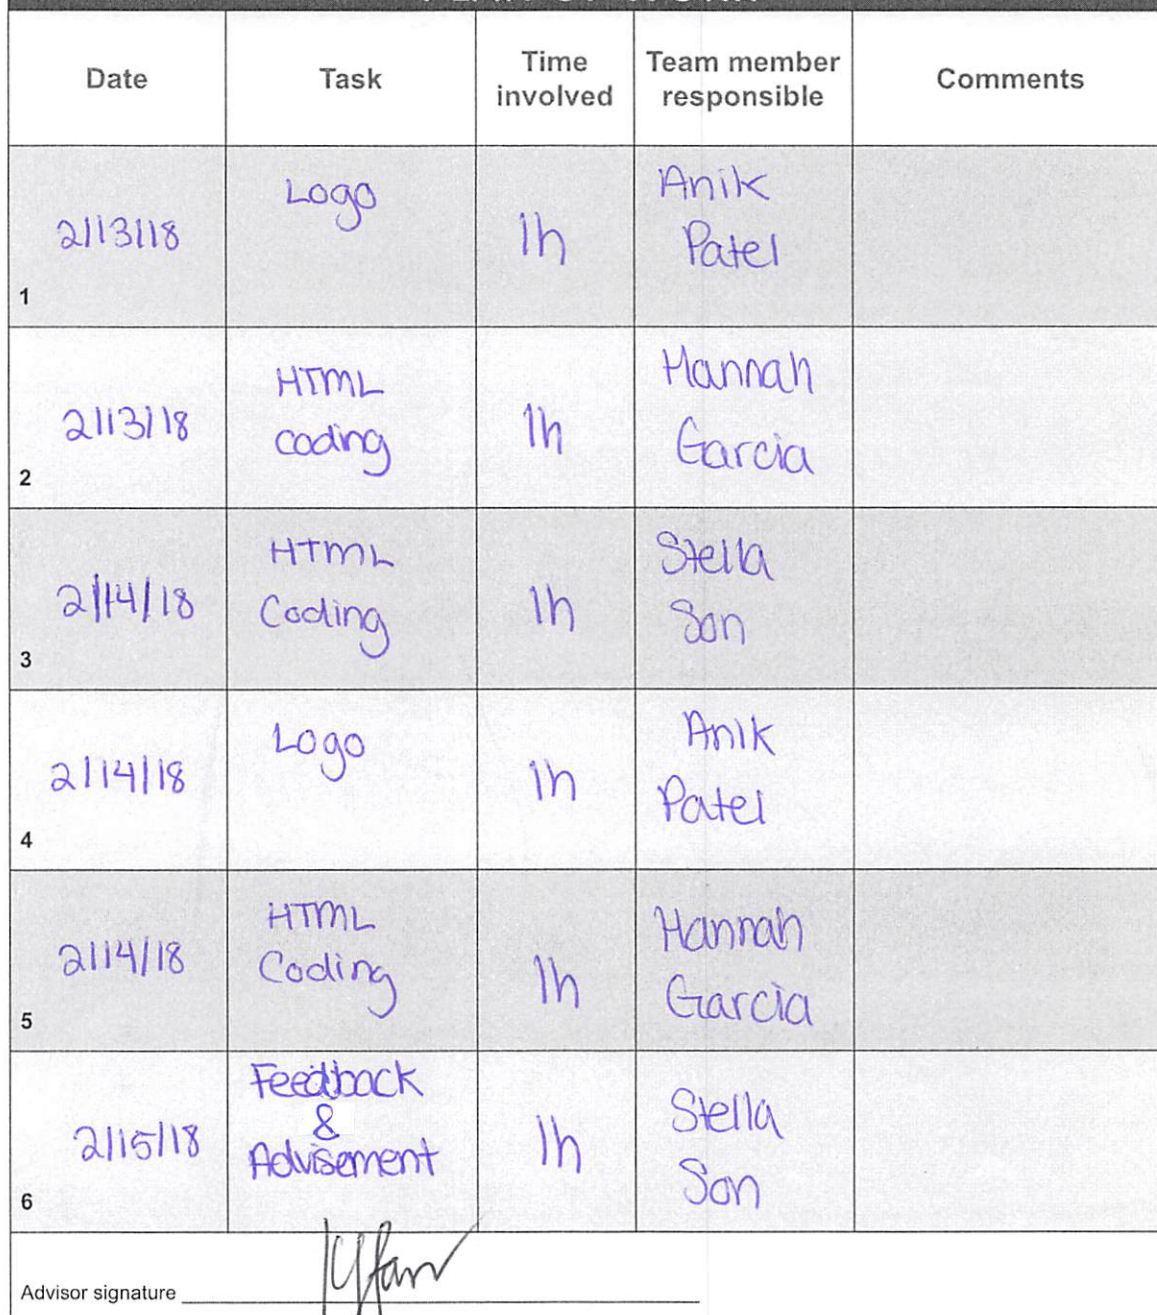 PLAN OF WORK
Date Task Time involved Team member responsible Comments
1 2/13/18 Logo 1h Anik Patel
2 2/13/18 HTML coding 1h Hannah Garcia
3 2/14/18 HTML Coding 1h Stella Son
4 2/14/18 Logo 1h Anik Patel
5 2/14/18 HTML Coding 1h Hannah Garcia
6 2/15/18 Feedback & Advisement 1h Stella Son
Advisor signature